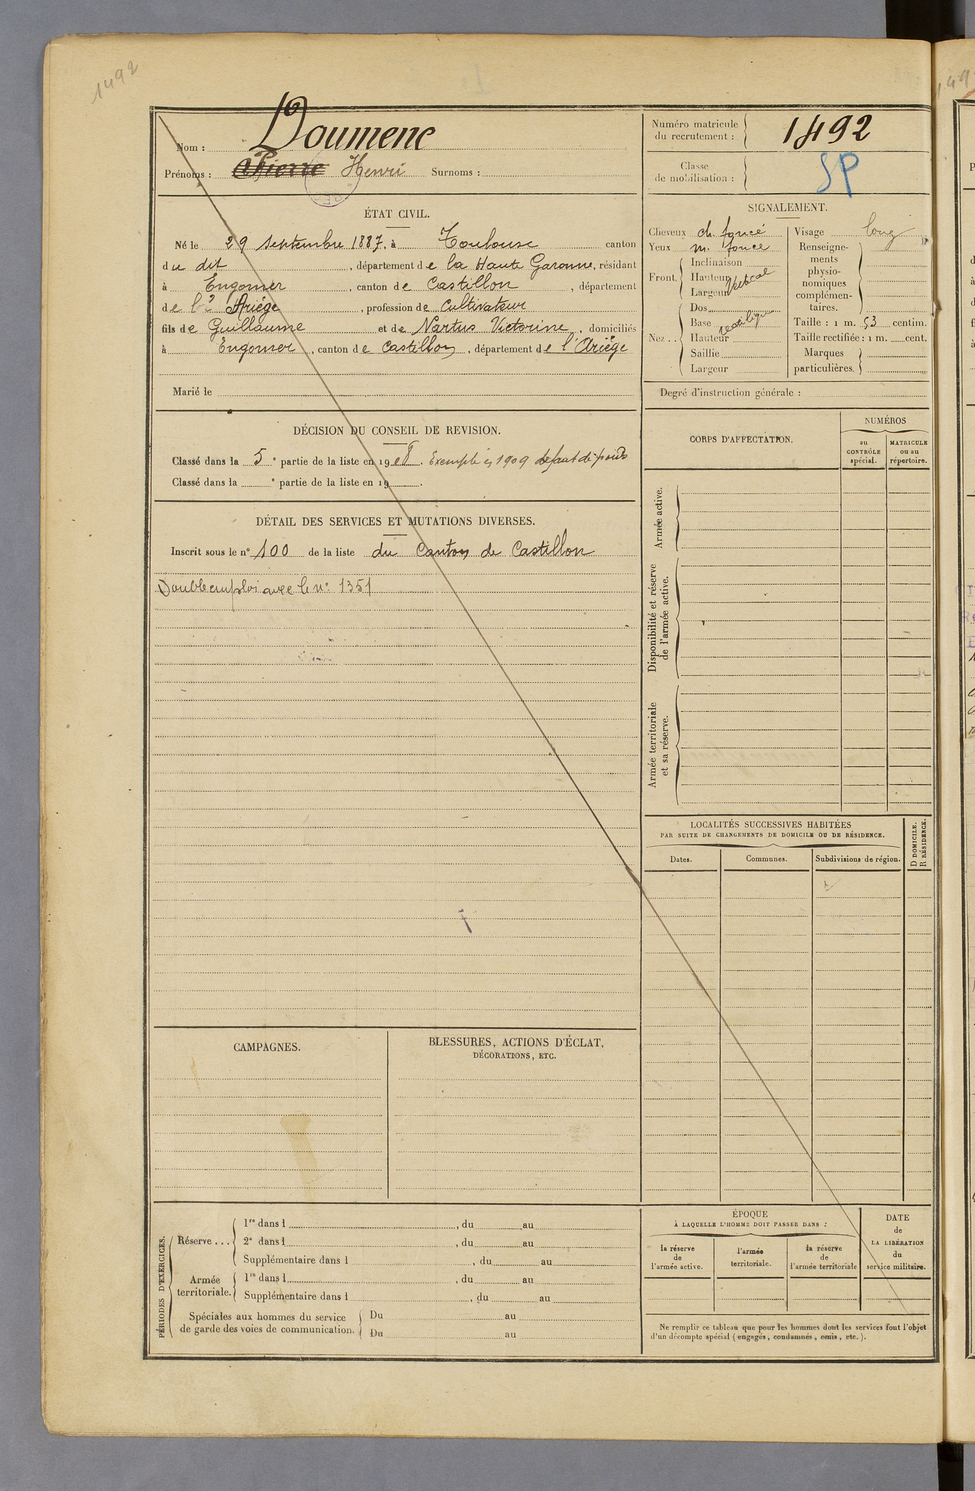 1492
Nom : Doumenc
Prénoms : Pierre Henri Surnoms :
ÉTAT CIVIL.
Né le 29 Septembre 1887, à Toulouse canton
du dit, département de la Haute Garonne, résidant
à Engomer, canton de Castillon, département
de l' Ariége, profession de Cultivateur
fils de Guillaume et de Nartus Victorine, domiciliés
à Engomer, canton de Castillon, département de l'Ariége
Marié le
DÉCISION DU CONSEIL DE REVISION.
Classé dans la 5e partie de la liste en 1908. Exempté en 1909 défaut de poids
Classé dans la e partie de la liste en 19 .
DÉTAIL DES SERVICES ET MUTATIONS DIVERSES.
Inscrit sous le n° 100 de la liste du Canton de Castillon
Double emploi avec le n° 1351
CAMPAGNES.
BLESSURES, ACTIONS D'ÉCLAT,
DÉCORATIONS, ETC.
PÉRIODES D'EXERCICES.
Réserve ...
1re dans l , du au
2e dans l , du au
Supplémentaire dans l , du au
Armée territoriale.
1re dans l , du au
Supplémentaire dans l , du au
Spéciales aux hommes du service
de garde des voies de communication.
Du au
Du au
Numéro matricule
du recrutement : 1492
Classe
de mobilisation : SP
SIGNALEMENT.
Cheveux ch. foncé
Yeux m. foncé
Front.
Inclinaison
Hauteur
Largeur
Vertical
Nez ..
Dos
Base rectiligne
Hauteur
Saillie
Largeur
Visage long
Renseigne-
ments
physio-
nomiques
complémen-
taires.
Taille : 1 m. 53 centim.
Taille rectifiée : 1 m. cent.
Marques
particulières.
Degré d'instruction générale :
CORPS D'AFFECTATION.
NUMÉROS
au
CONTRÔLE
spécial.
MATRICULE
ou au
répertoire.
Armée active.
Disponibilité et réserve
de l'armée active.
Armée territoriale
et sa réserve.
LOCALITÉS SUCCESSIVES HABITÉES
PAR SUITE DE CHANGEMENTS DE DOMICILE OU DE RÉSIDENCE.
Dates.
Communes.
Subdivisions de région.
D DOMICILE.
R RÉSIDENCE.
ÉPOQUE
À LAQUELLE L'HOMME DOIT PASSER DANS :
la réserve
de
l'armée active.
l'armée
territoriale.
la réserve
de
l'armée territoriale
DATE
de
LA LIBÉRATION
du
service militaire.
Ne remplir ce tableau que pour les hommes dont les services font l'objet
d'un décompte spécial (engagés, condamnés, omis, etc.).